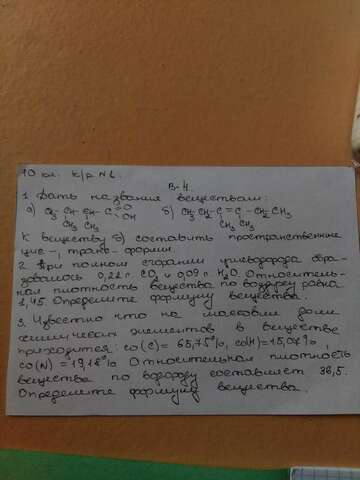 10 кл. К/р №1.
В-4
1. Дать названия веществам:
а) CH3 - CH - CH - C = O б) CH3 CH2 C = C - CH2 CH3
OH
CH3 CH3 CH3 CH3
К веществу б) составить пространственные
цис-, транс- формы.
2. При полном сгорании углеводорода обра-
зовалось 0,22 г CO2 и 0,09 г. H2O. Относитель-
ная плотность вещества по воздуху равна
1,45. Определите формулу вещества.
3. Известно что на массовые доли
химических элементов в веществе
приходится: ω(C) = 65,75%, ω(H) = 15,07%,
ω(N) = 19,18% Относительная плотность
вещества по водороду составляет 36,5.
Определите формулу вещества.